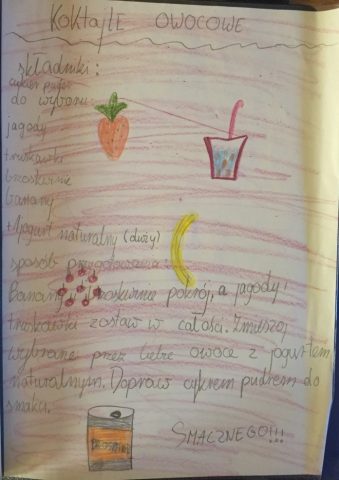 KOKTAJLE OWOCOWE
składniki:
cukier puder
do wyboru:
jagody
truskawki
brzoskwinie
banany
+ Jogurt naturalny (duży)
sposób przygotowania:
Banany i brzoskwinie pokrój, a jagody i
truskawki zostaw w całości. Zmieszaj
wybrane przez ciebie owoce z jogurtem
naturalnym. Dopraw cukrem pudrem do
smaku.
SMACZNEGO!!!